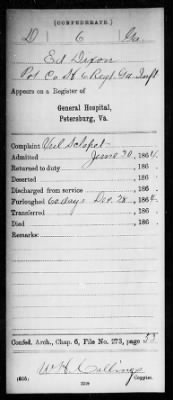 (CONFEDERATE.)
D 6 Ga.
Ed Dixon
Pvt Co. H 6 Regt. Ga. Inft
Appears on a Register of
General Hospital,
Petersburg, Va.
Complaint Vul Sclopet
Admitted June 30, 1864.
Returned to duty , 186 .
Deserted , 186 .
Discharged from service , 186 .
Furloughed 60 days Dec. 28, 186
Transferred , 186 .
Died , 186 .
Remarks:
Confed. Arch., Chap. 6, File No. 273, page 53
W.H. Collings
(635) Copyist.